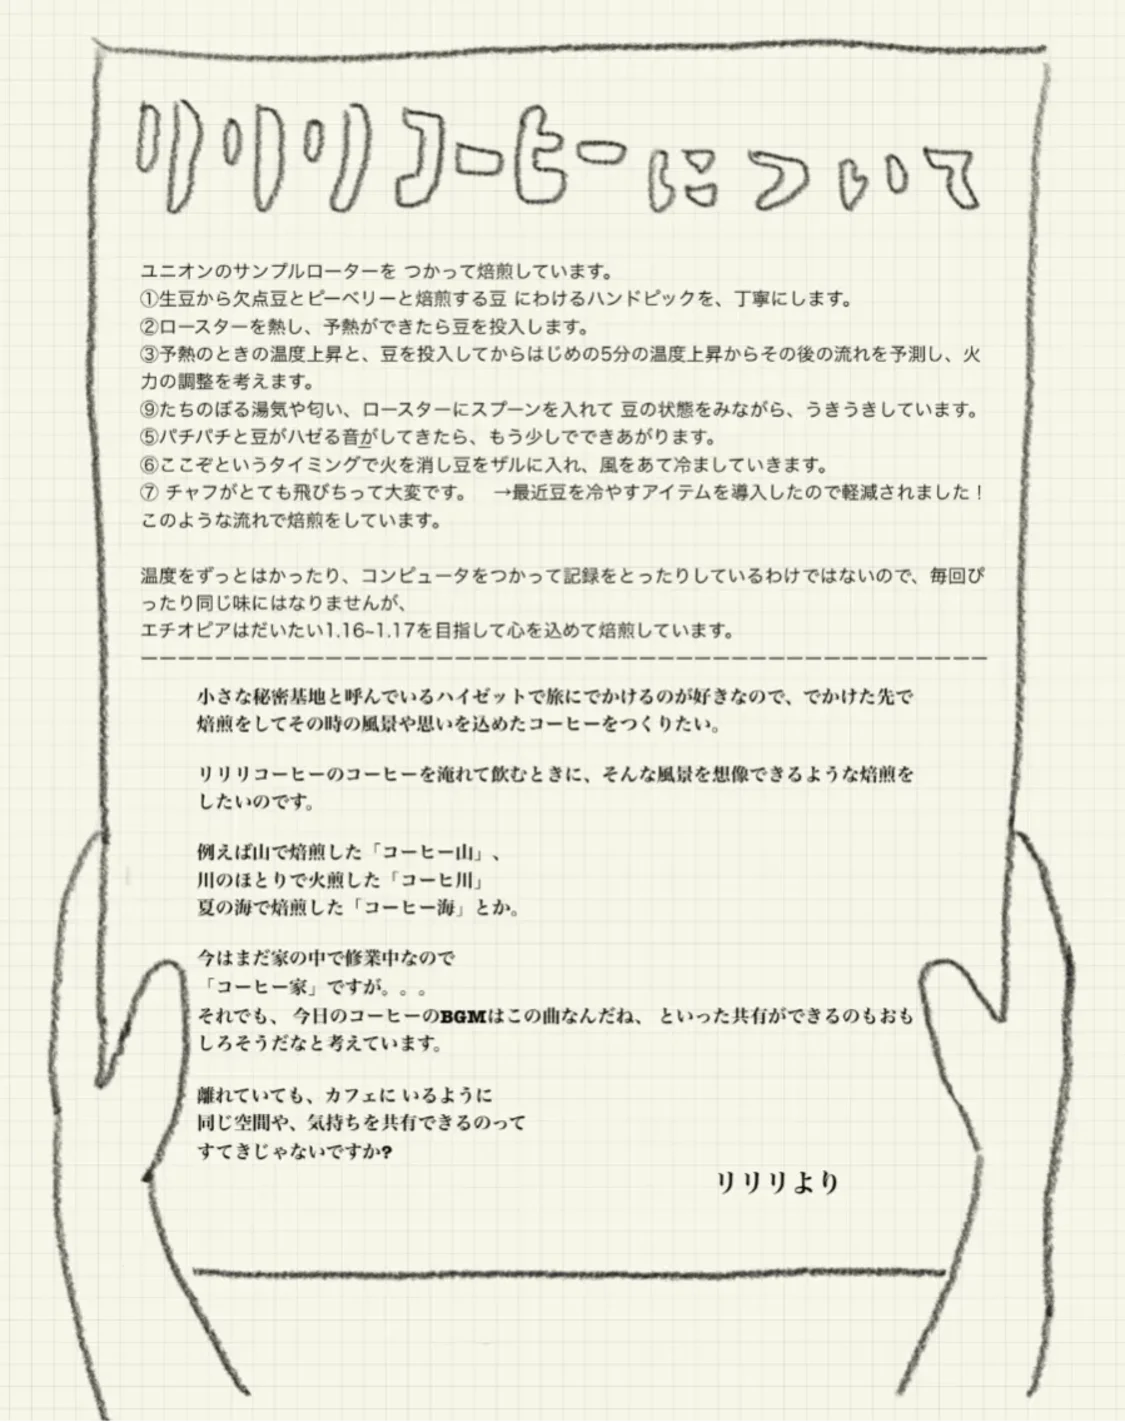 リリリコーヒーについて
ユニオンのサンプルローターを つかって焙煎しています。
①生豆から欠点豆とピーベリーと焙煎する豆 にわけるハンドピックを、丁寧にします。
②ロースターを熱し、予熱ができたら豆を投入します。
③予熱のときの温度上昇と、豆を投入してからはじめの5分の温度上昇からその後の流れを予測し、火
力の調整を考えます。
⑨たちのぼる湯気や匂い、ロースターにスプーンを入れて 豆の状態をみながら、うきうきしています。
⑤パチパチと豆がハゼる音がしてきたら、もう少しでできあがります。
⑥ここぞというタイミングで火を消し豆をザルに入れ、風をあて冷ましていきます。
⑦ チャフがとても飛びちって大変です。　→最近豆を冷やすアイテムを導入したので軽減されました！
このような流れで焙煎をしています。
温度をずっとはかったり、コンピュータをつかって記録をとったりしているわけではないので、毎回ぴ
ったり同じ味にはなりませんが、
エチオピアはだいたい1.16~1.17を目指して心を込めて焙煎しています。
小さな秘密基地と呼んでいるハイゼットで旅にでかけるのが好きなので、でかけた先で
焙煎をしてその時の風景や思いを込めたコーヒーをつくりたい。
リリリコーヒーのコーヒーを淹れて飲むときに、そんな風景を想像できるような焙煎を
したいのです。
例えば山で焙煎した「コーヒー山」、
川のほとりで火煎した「コーヒ川」
夏の海で焙煎した「コーヒー海」とか。
今はまだ家の中で修業中なので
「コーヒー家」ですが。。。
それでも、 今日のコーヒーのBGMはこの曲なんだね、 といった共有ができるのもおも
しろそうだなと考えています。
離れていても、カフェに いるように
同じ空間や、気持ちを共有できるのって
すてきじゃないですか?
リリリより